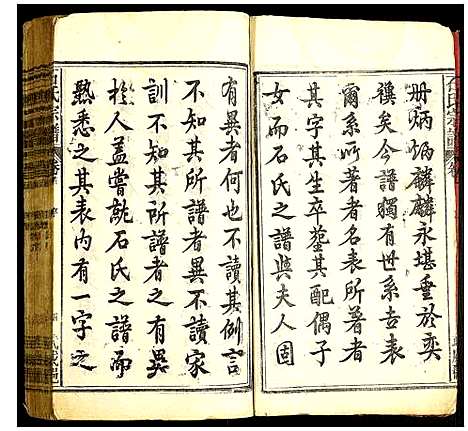 冊炳炳麟麟永堪垂於奕
禩矣今譜獨有世系吉表
爾系所著者名表所著者
其字其生卒葬其配偶子
女而石氏之譜與夫人固
有異者何也不讀其例言
不知其所譜者異不讀家
訓不知其所譜者之有異
於人盖嘗就石氏之譜而
熟悉之其表內有一字之
石氏宗譜